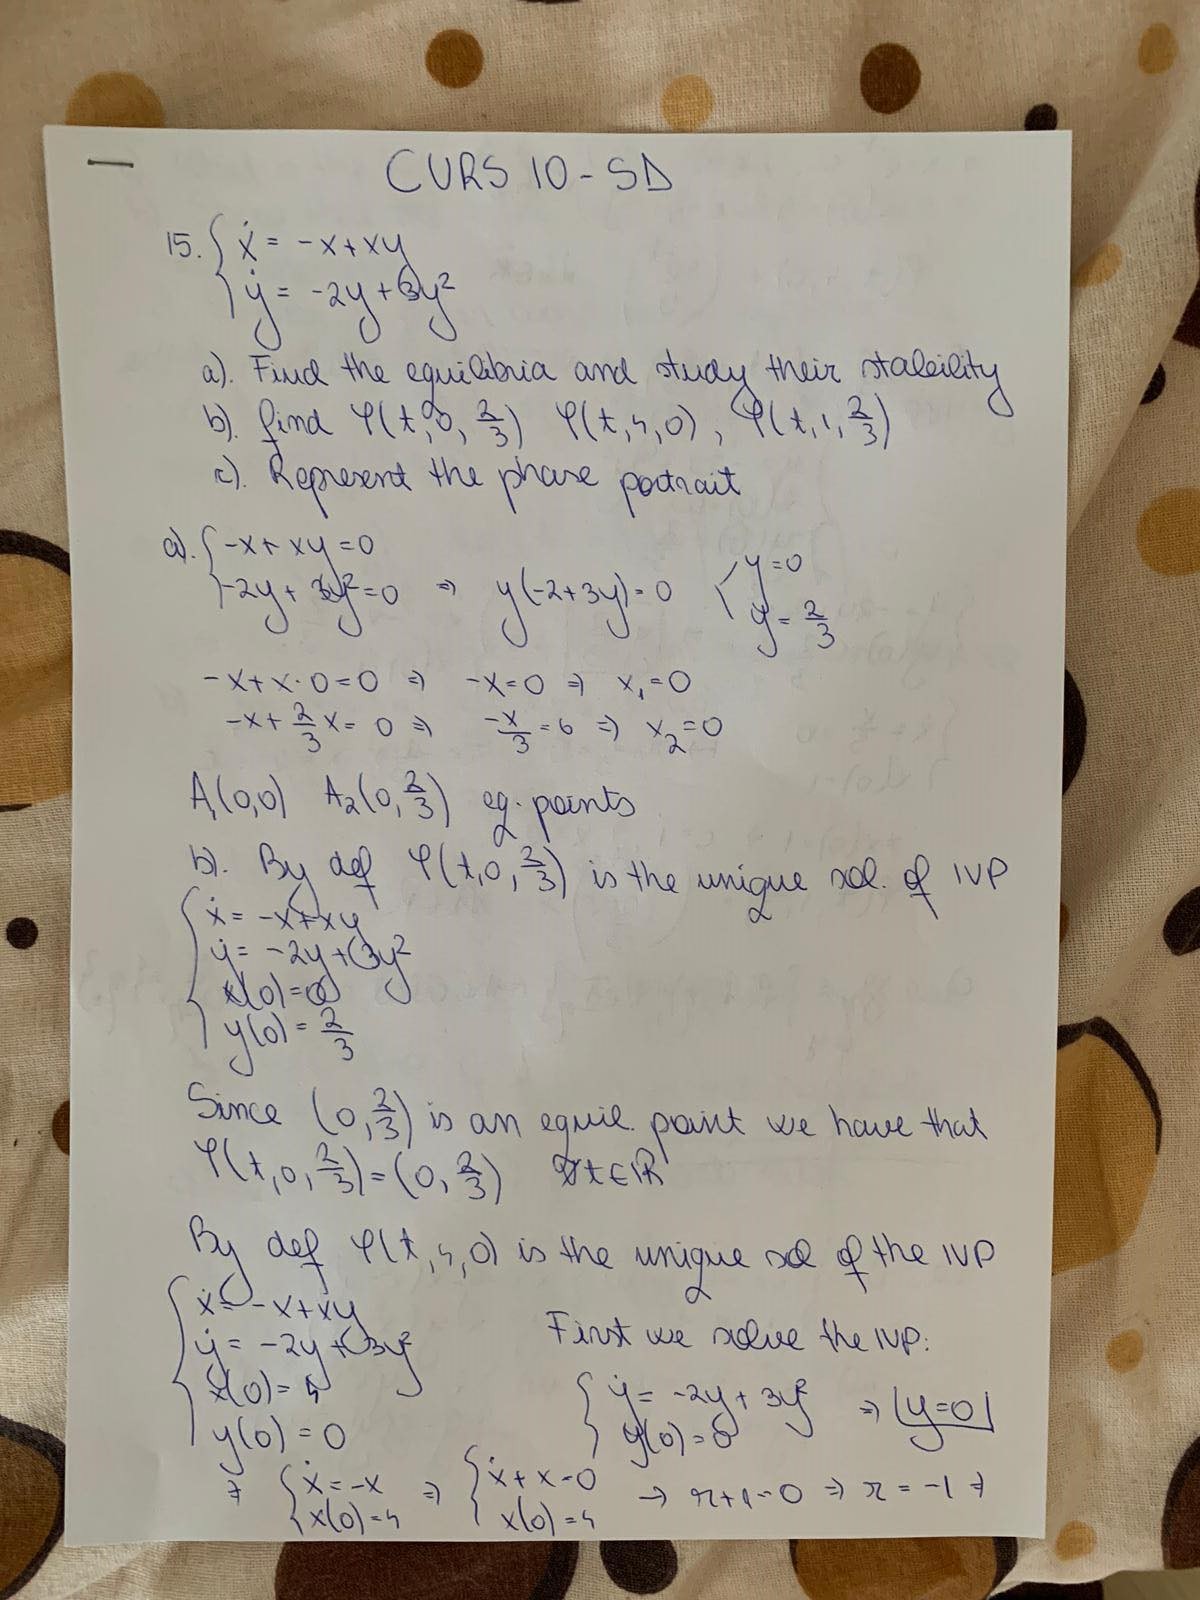 CURS 10 - SD
15. { ẋ = -x + xy
ẏ = -2y + 3y²
a). Find the equilibria and study their stability
b). find φ(t, 0, 2/3) φ(t, 4, 0), φ(t, 1, 2/3)
c). Represent the phase portrait
a). { -x + xy = 0
-2y + 3y² = 0 => y(-2+3y) = 0 < y = 0
y = 2/3
-x + x·0 = 0 => -x = 0 => x₁ = 0
-x + 2/3 x = 0 => -x/3 = 0 => x₂ = 0
A₁(0,0) A₂(0, 2/3) eq. points
b). By def φ(t, 0, 2/3) is the unique sol. of IVP
{ ẋ = -x + xy
ẏ = -2y + 3y²
x(0) = 0
y(0) = 2/3
Since (0, 2/3) is an equil. point we have that
φ(t, 0, 2/3) = (0, 2/3) ∀t∈ℝ
By def φ(t, 4, 0) is the unique sol of the IVP
{ ẋ = -x + xy
ẏ = -2y + 3y²
x(0) = 4
y(0) = 0
First we solve the IVP:
{ ẏ = -2y + 3y² => |y=0|
y(0) = 0
=> { ẋ = -x => { ẋ + x = 0 -> r+1 = 0 => r = -1 =>
x(0) = 4 x(0) = 4